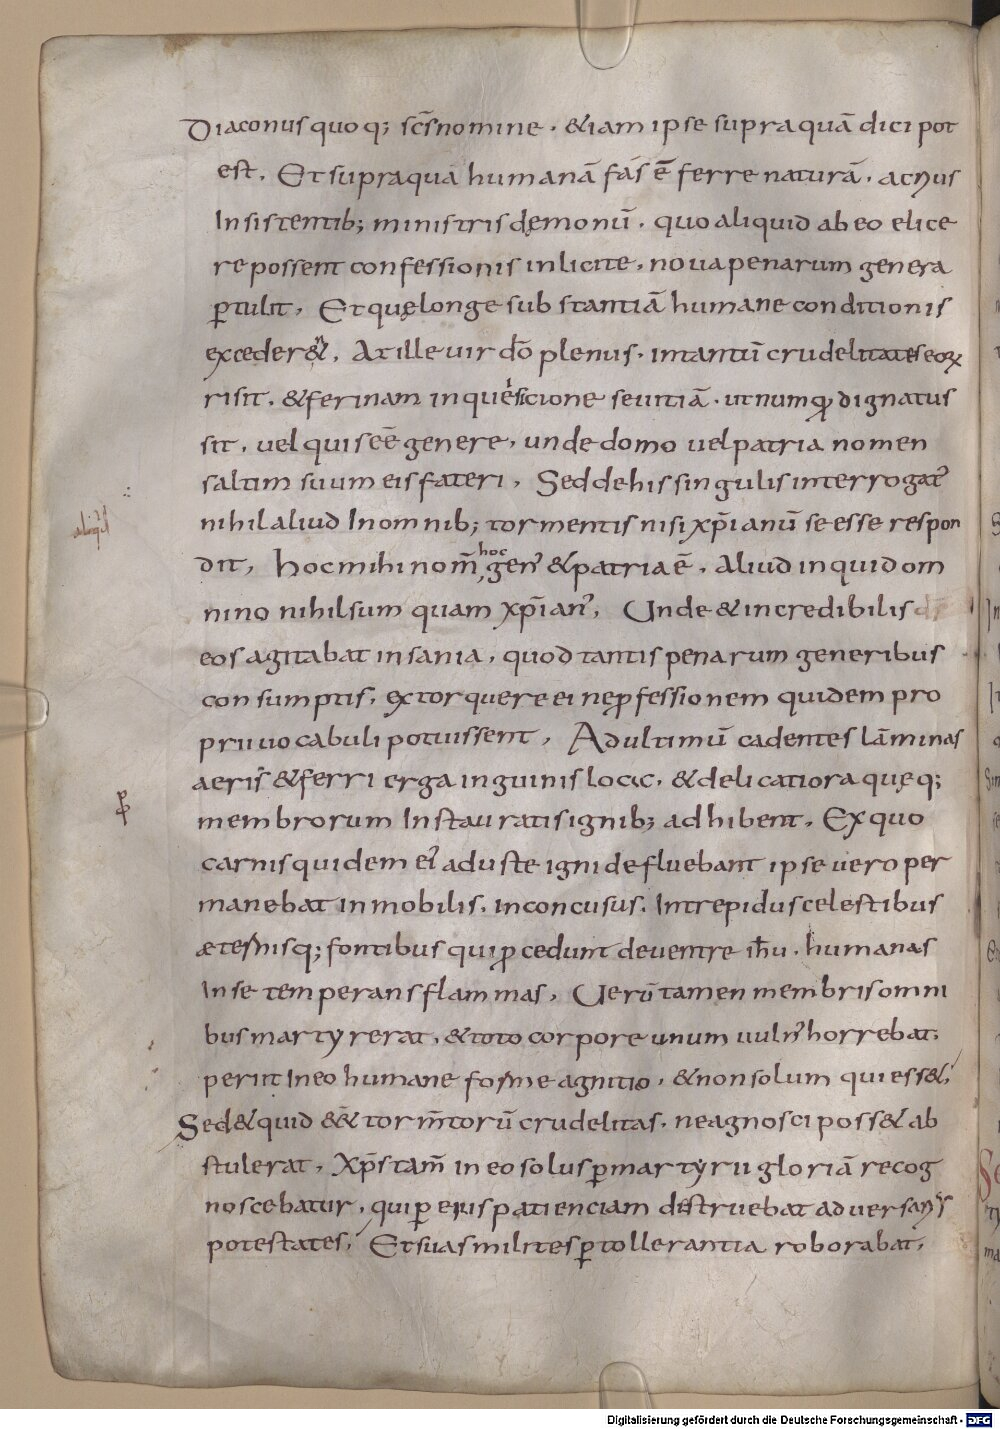 Diaconus quoq; sc̄s nomine . &iam ipse supra quā dici pot
est . Et supra quā humanā fas ē ferre naturā . acrius
Insistentib; ministris dęmonū . quo aliquid ab eo elice
re possent confessionis inlicite , noua penarum genera
ꝑtulit , Et quę longe substantiā humane conditionis
exceder& , At ille uir dō plenus . in tantū crudelitates eoꝝ
risit . & ferinam in quęsicione seuitiā . ut numꝗ dignatus
sit , uel qui seē genere , unde domo uel patria nomen
saltim suum eis fateri , Sed de his singulis interrogat᾽
nihil aliud In omnib; tormentis nisi xp̄ianū se esse respon
dit , hoc mihi nom̄ hoc gen᾽ & patria ē . Aliud inquid om
nino nihil sum quam xp̄ian᾽ , Unde & incredibilis
eos agitabat insania , quod tantis penarum generibus
consumptis , extorquere ei ne ꝓfessionem quidem pro
prii uocabuli potuissent , Ad ultimū cadentes lāminas
aeris & ferri erga inguinis loca . & delicatiora quęq;
membrorum Instauratis ignib; adhibent . Ex quo
carnis quidem ei᾽ aduste igni defluebant ipse uero per
manebat inmobilis . inconcusus . Intrepidus celestibus
æternisq; fontibus qui ꝓcedunt de uentre ih̄u . humanas
In se temperans flammas , Uerū tamen membris omni
bus martyr erat , & toto corpore unum uuln᾽ horrebat ,
periit In eo humane forme agnitio . & non solum qui ess& ,
Sed & quid &̄& torm̄torū crudelitas . ne agnosci poss& ab
stulerat , Xp̄s tam̄ in eo solus ꝑ martyrii gloriā recog
noscebatur , qui ꝑ eius patienciam distruebat aduersarii
potestates , Et suas milites ꝑ tollerantia roborabat ,
Digitalisierung gefördert durch die Deutsche Forschungsgemeinschaft - DFG